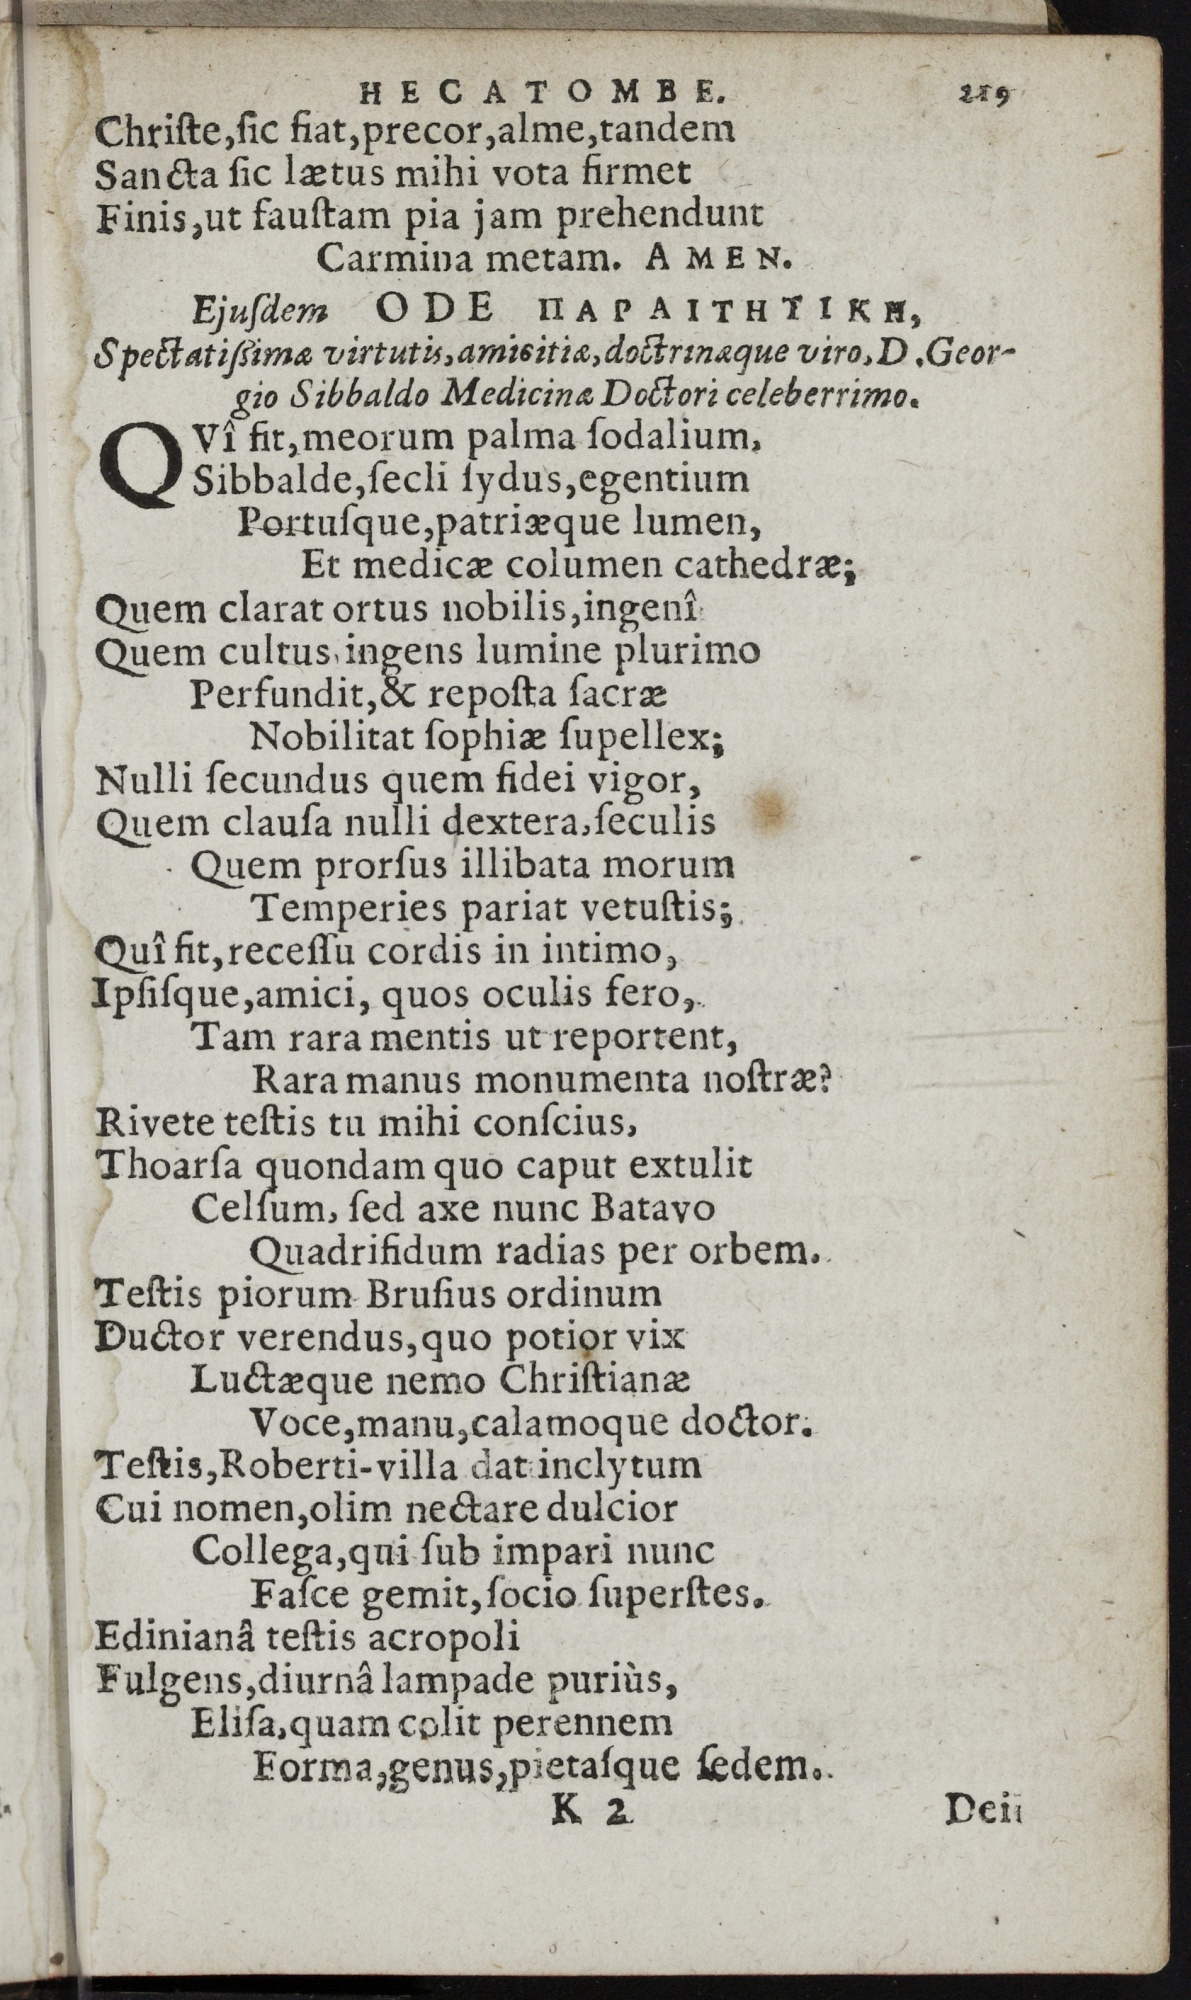 HECATOMBE. 219
Chriſte,ſic fiat,precor,alme,tandem
Sancta ſic lætus mihi vota firmet
Finis,ut fauſtam pia jam prehendunt
Carmina metam. AMEN.
Ejuſdem ODE ΠΑΡΑΙΤΗΤΙΚΗ,
Spectatiſſimæ virtutis,amicitiæ,doctrinæque viro,D.Geor-
gio Sibbaldo Medicinæ Doctori celeberrimo.
QVî fit,meorum palma ſodalium,
Sibbalde,ſecli ſydus,egentium
Portuſque,patriæque lumen,
Et medicæ columen cathedræ;
Quem clarat ortus nobilis,ingenî
Quem cultus,ingens lumine plurimo
Perfundit,& repoſta ſacræ
Nobilitat ſophiæ ſupellex;
Nulli ſecundus quem fidei vigor,
Quem clauſa nulli dextera,ſeculis
Quem prorſus illibata morum
Temperies pariat vetuſtis;
Quî fit,receſſu cordis in intimo,
Ipſiſque,amici, quos oculis fero,
Tam rara mentis ut reportent,
Rara manus monumenta noſtræ?
Rivete teſtis tu mihi conſcius,
Thoarſa quondam quo caput extulit
Celſum, ſed axe nunc Batavo
Quadrifidum radias per orbem.
Teſtis piorum Bruſius ordinum
Ductor verendus,quo potior vix
Luctæque nemo Chriſtianæ
Voce,manu,calamoque doctor.
Teſtis,Roberti-villa dat inclytum
Cui nomen,olim nectare dulcior
Collega,qui ſub impari nunc
Faſce gemit,ſocio ſuperſtes.
Edinianâ teſtis acropoli
Fulgens,diurnâ lampade puriùs,
Eliſa,quam colit perennem
Forma,genus,pietaſque ſedem.
K 2 Deii